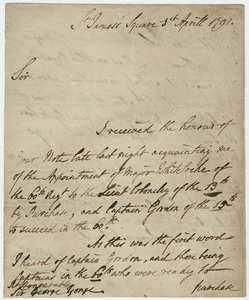 St James's Square 3d April 1791.
Sir
I received the honour of
Your Note late last night acquainting me
of the Appointment of Major Whitelocke of
the 60th Regt to the Lieut Colonelcy of the 13th
by Purchase, and Captain Gordon of the 13th
to succeed in the 60th.
As this was the first word
I heard of Captain Gordon, and there being
Captains in the who were ready to
Purchase
Sir George Yonge